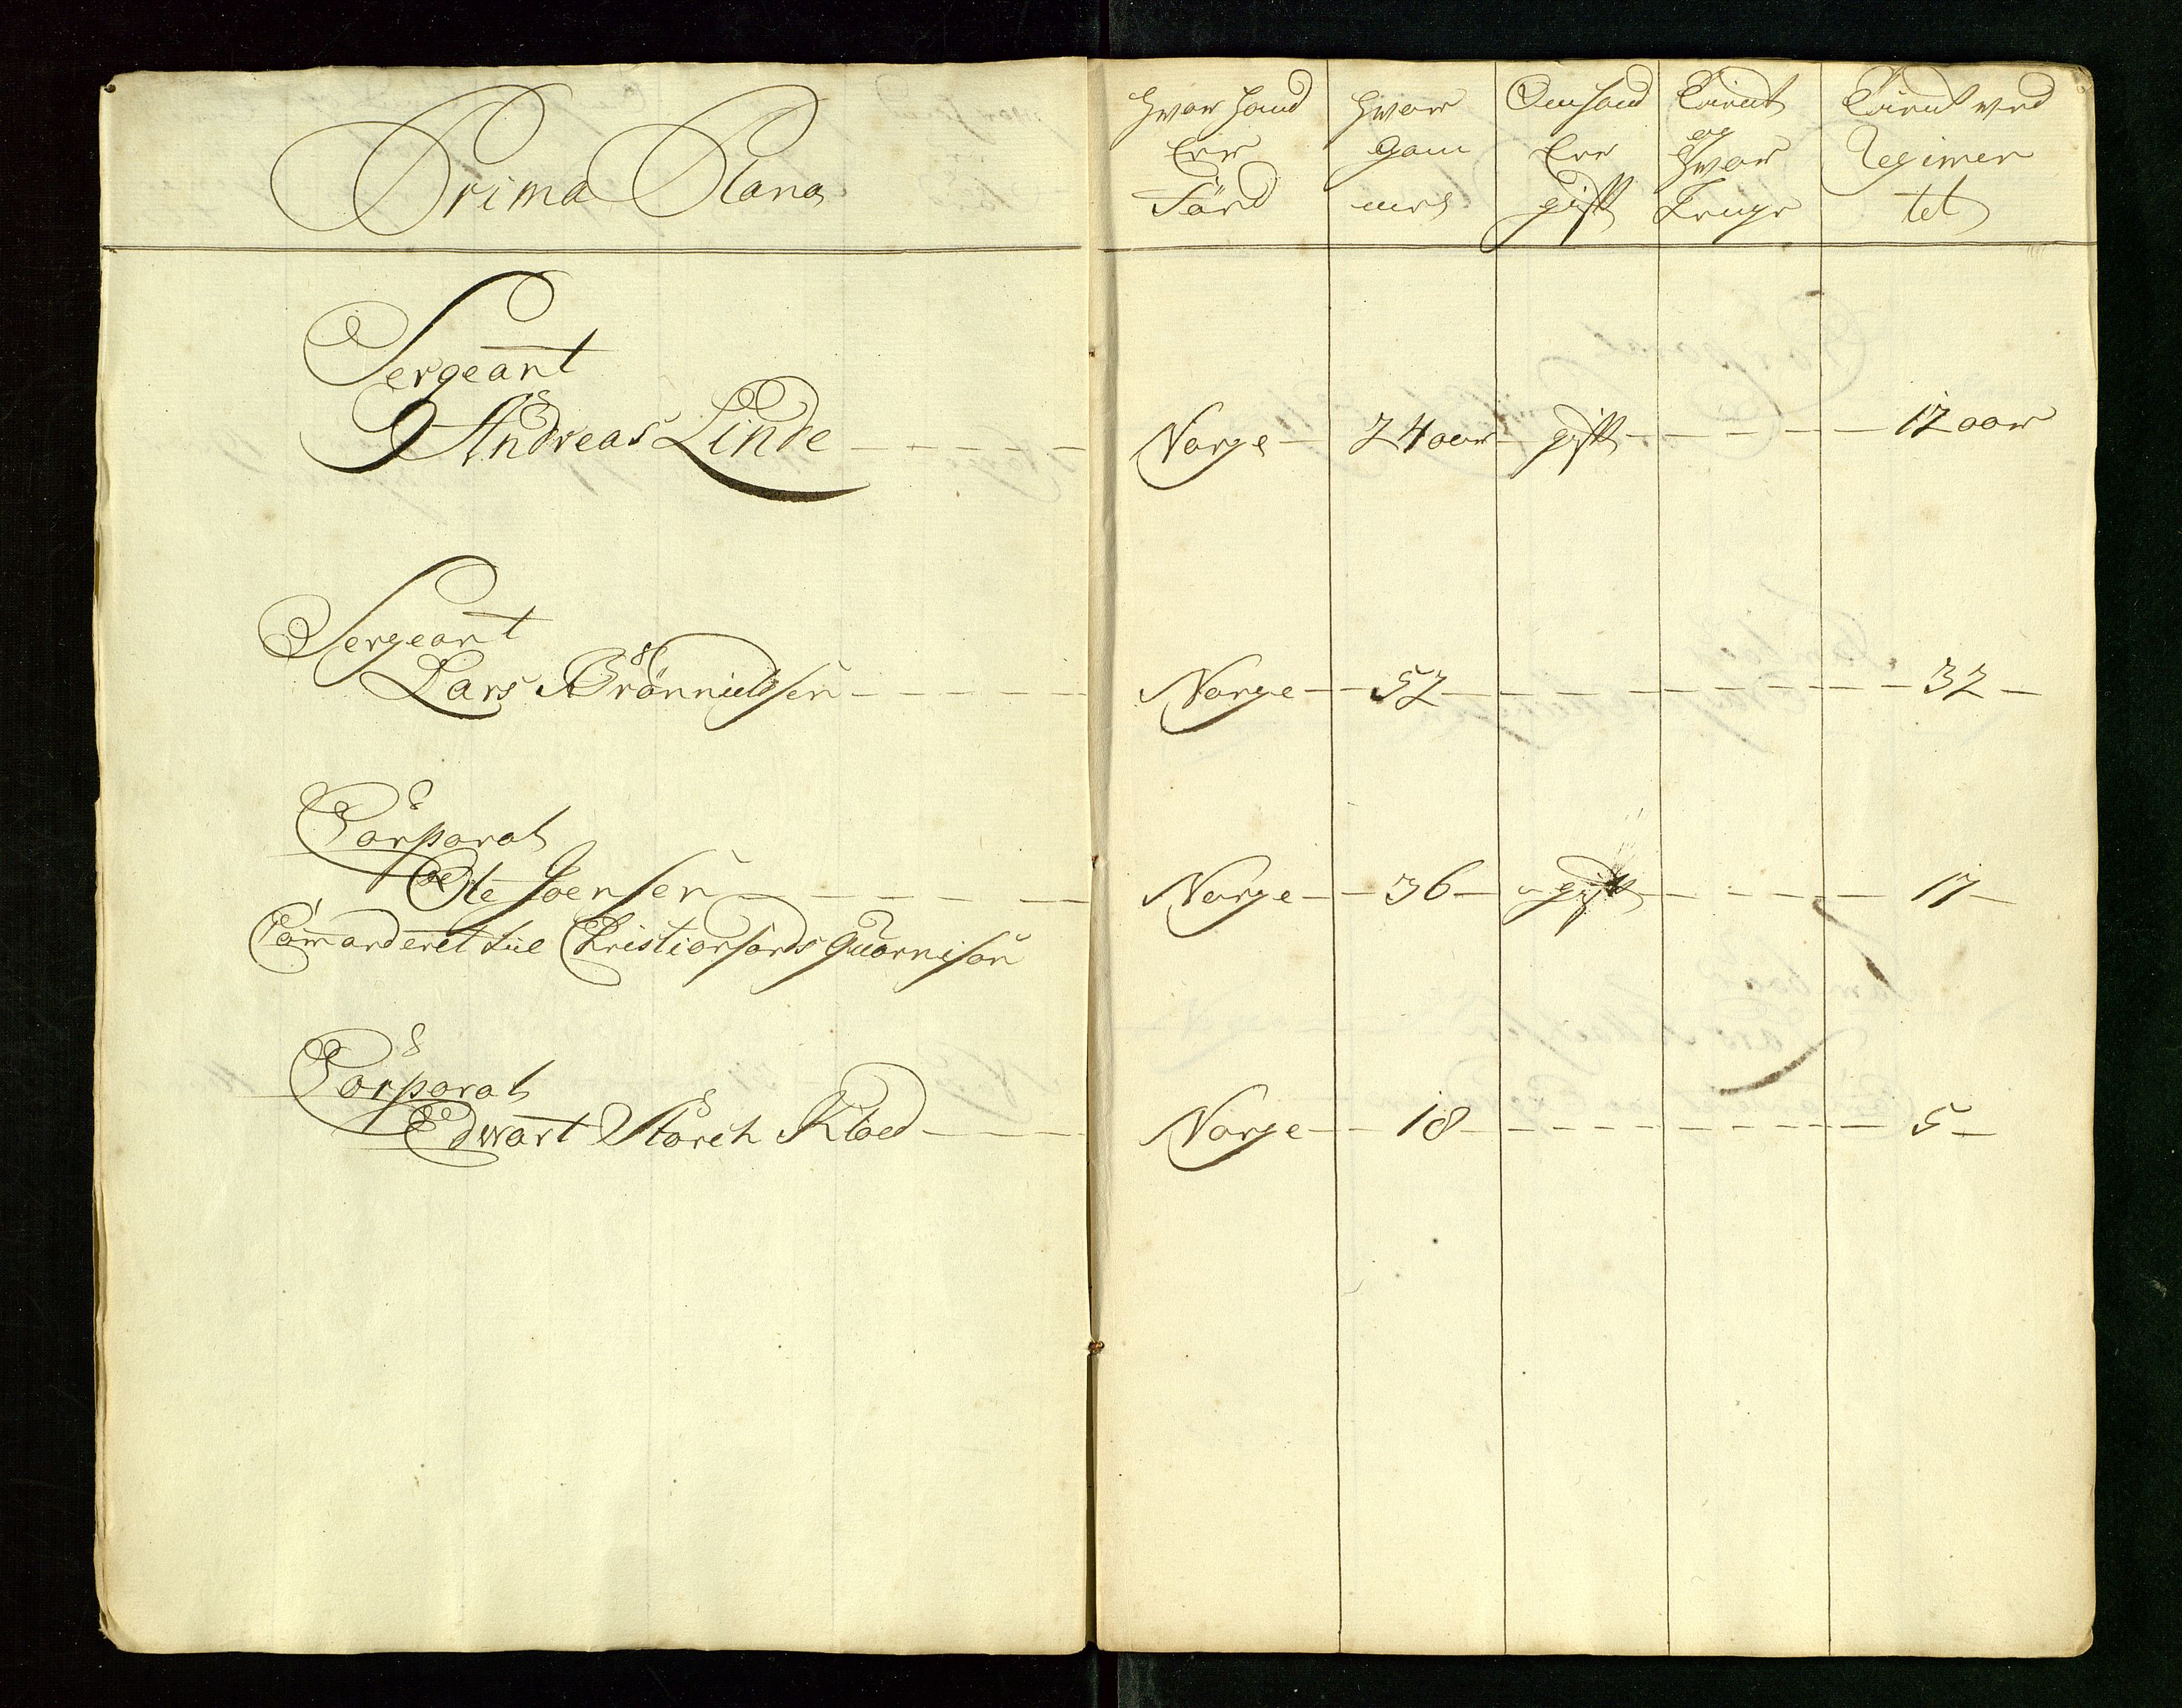 Prima Plana
hvor hand Err Född
hvor gam mel
Om hand Err gift
Tient og hvor Lenge
Tient ved Regimen tet
Sergeant
Andreas Linde Norge 24 aar gift 12 aar
Sergeant
Lars Brönnildsen Norge 52 32
Corporal
Ole Joensen Norge 36 ugift 17
Commanderet till Christiansands Guarnison
Corporal
Edwart Storch Kloed Norge 18 5